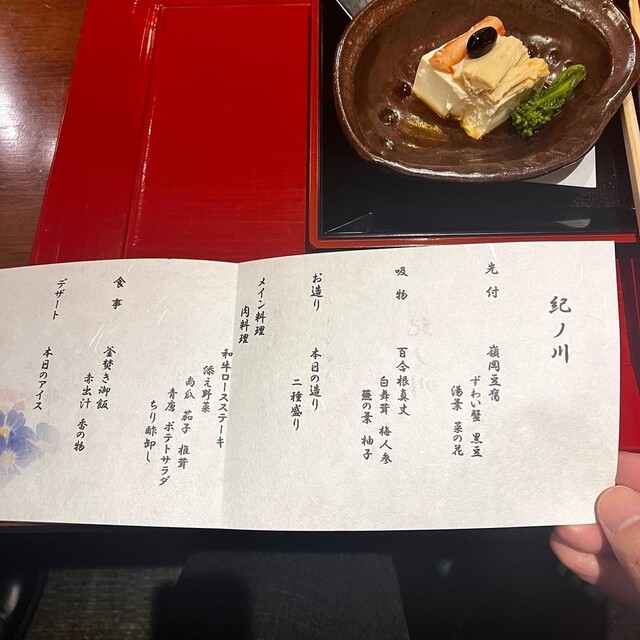 紀ノ川
先付
嶺岡豆腐
ずわい蟹 黒豆
湯葉 菜の花
吸物
百合根真丈
白舞茸 梅人参
蕪の葉 柚子
お造り
本日の造り
二種盛り
メイン料理
肉料理
和牛ロースステーキ
添え野菜
南瓜 茄子 椎茸
青唐 ポテトサラダ
ちり酢卸し
食事
釜焚き御飯
赤出汁 香の物
デザート
本日のアイス